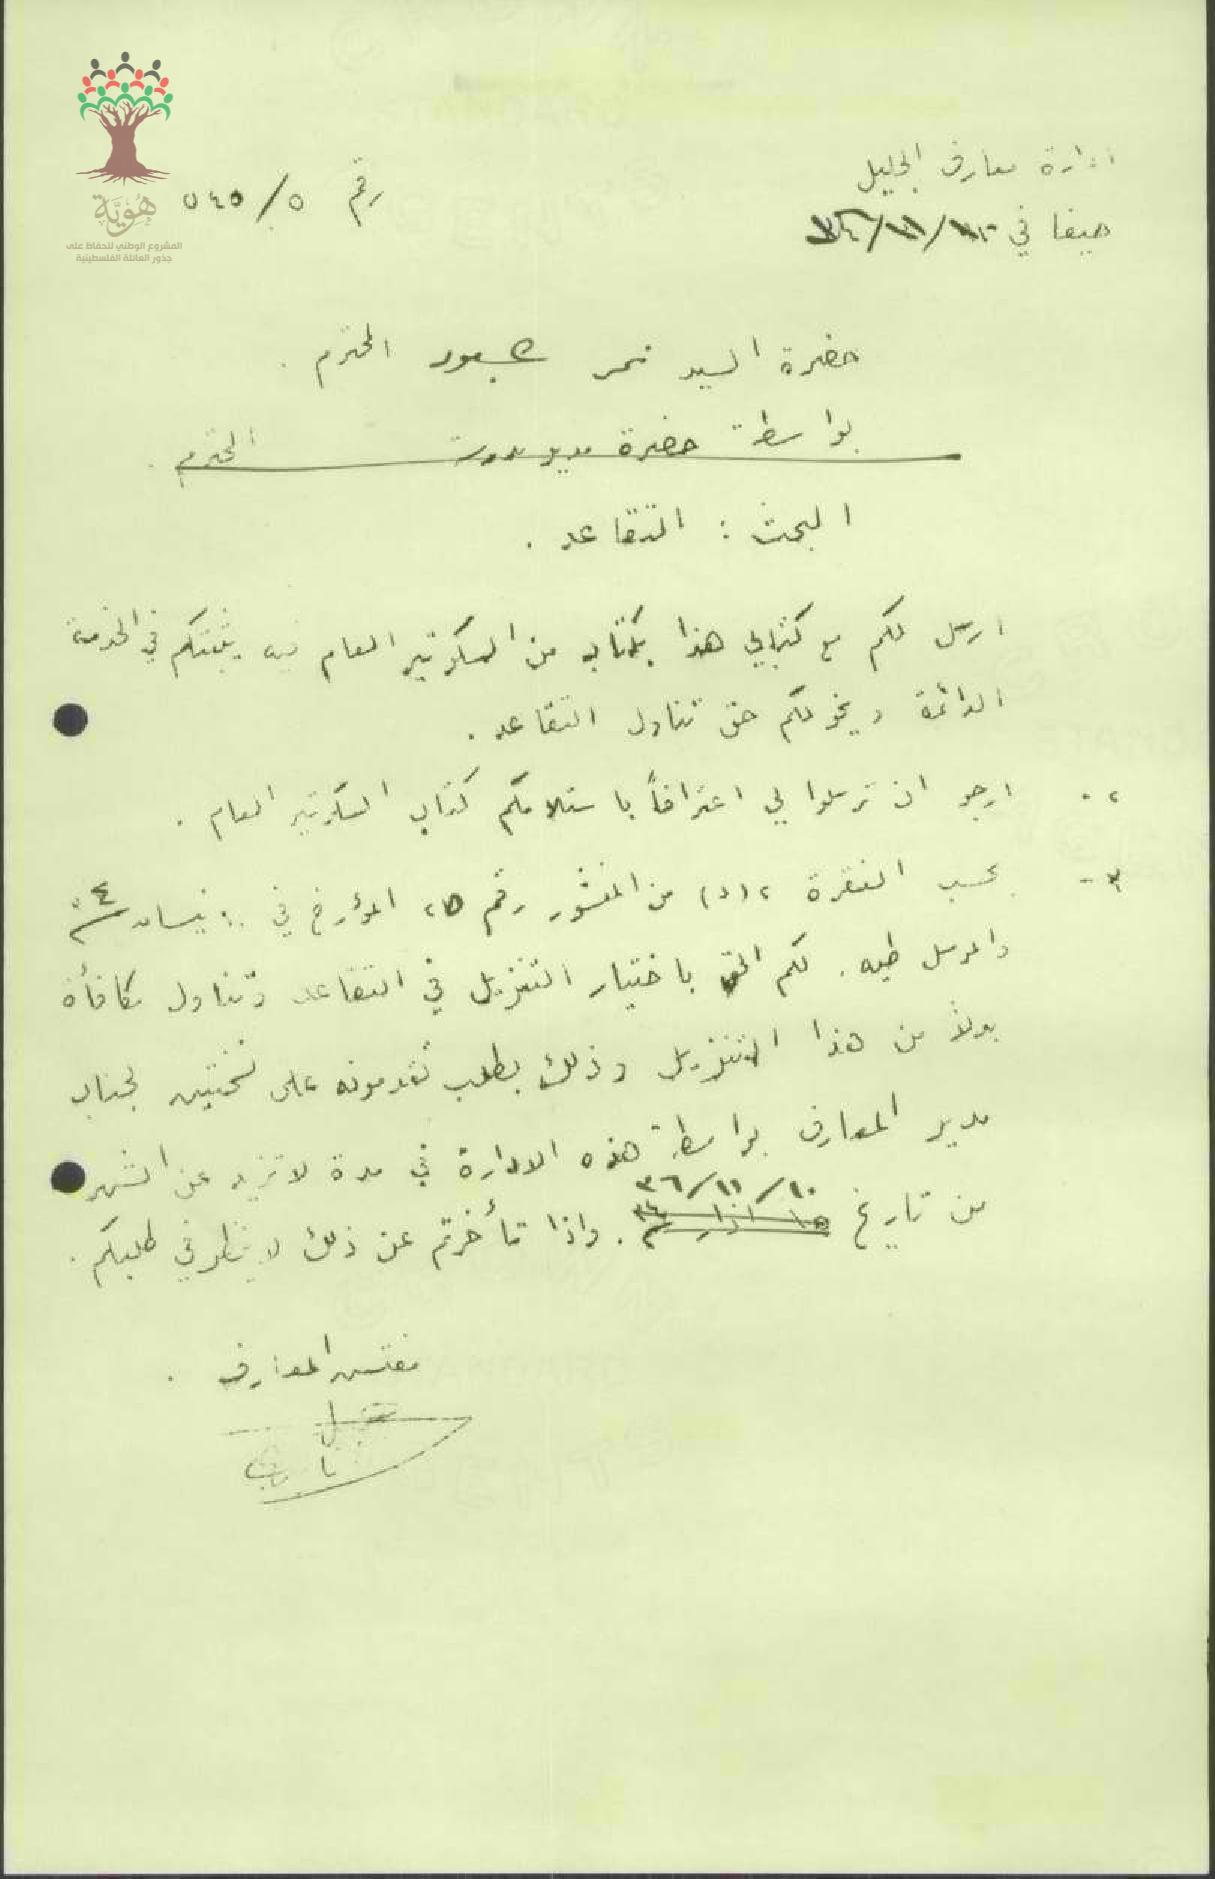 هُوِيَّة
المشروع الوطني للحفاظ على
جذور العائلة الفلسطينية
ادارة معارف الجليل
رقم ٥/٥٤٥
حيفا في
حضرة السيد نمر عبود المحترم .
بواسطة حضرة مدير مدرسة المحترم .
البحث : التقاعد .
ارسل لكم مع كتابي هذا كتاب من السكرتير العام فيه يثبتكم في الخدمة
الدائمة ويخولكم حق تناول التقاعد .
٢- ارجو ان ترسلوا لي اعترافاً باستلامكم كتاب السكرتير العام .
٣- بحسب الفقرة ٢(د) من المنشور رقم ٢٥ المؤرخ في نيسان
والمرسل طيه . لكم الحق باختيار التنزيل في التقاعد وتناول مكافأة
بدلاً من هذا التنزيل وذلك بطلب تقدمونه على نسختين لجناب
مدير المعارف بواسطة هذه الادارة في مدة لا تزيد عن الشهر
من تاريخ ١٠/١١/٣٦ . واذا تأخرتم عن ذلك لا ينظر في طلبكم .
مفتش المعارف .